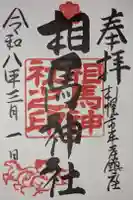 奉拝
相馬神社
相馬神
社之印
令和八年三月一日